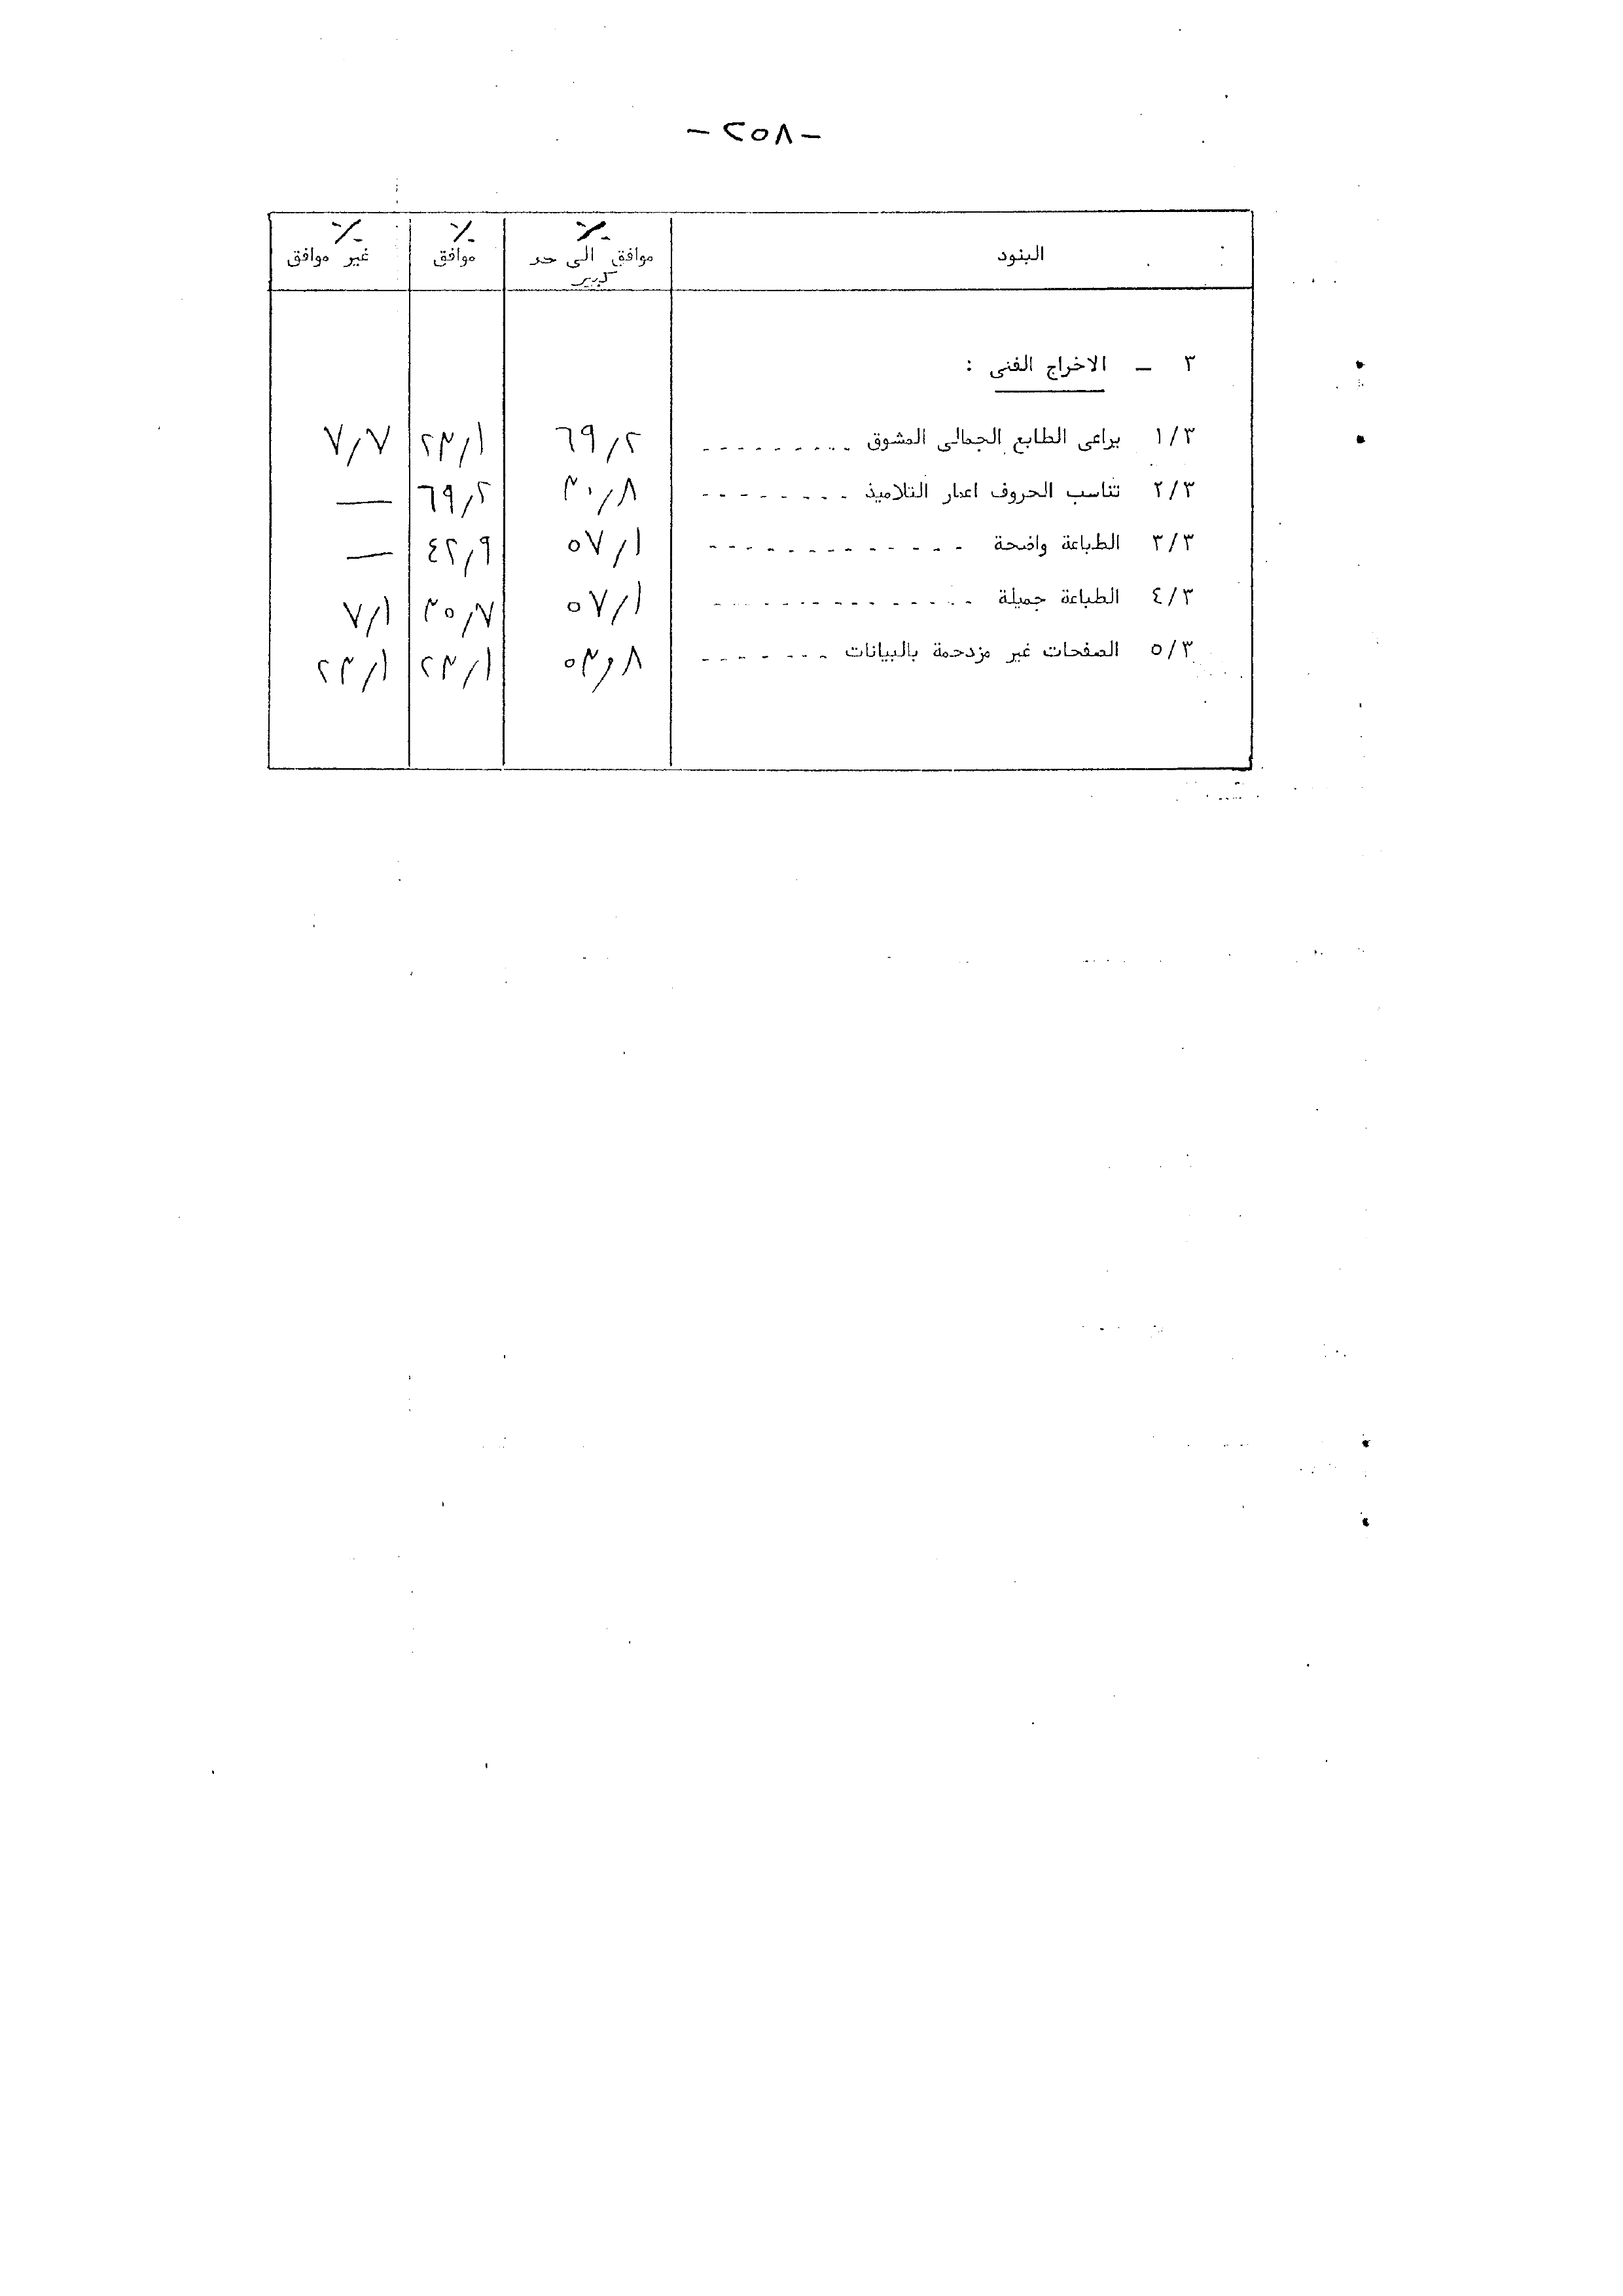 - ٢٥٨ -
البنود ٪ موافق الى حد كبير ٪ موافق ٪ غير موافق
٣ - الاخراج الفنى :
١/٣ يراعى الطابع الجمالى المشوق --------- ٦٩٫٢ ٢٣٫١ ٧٫٧
٢/٣ تناسب الحروف اعمار التلاميذ -------- ٣٠٫٨ ٦٩٫٢ —
٣/٣ الطباعة واضحة ------------- ٥٧٫١ ٤٢٫٩ —
٤/٣ الطباعة جميلة ------------- ٥٧٫١ ٣٥٫٧ ٧٫١
٥/٣ الصفحات غير مزدحمة بالبيانات ------- ٥٣٫٨ ٢٣٫١ ٢٣٫١